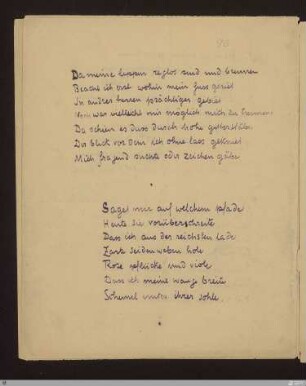 Da meine lippen reglos sind und brennen
Beacht ich erst wohin mein fuss geriet
In andrer herren prächtiges gebiet
Noch war vielleicht mir möglich mich zu trennen
Da schien es dass durch hohe gitterstäbe
Der blick vor dem ich ohne lass gekniet
Mich fragend suchte oder zeichen gäbe
Saget mir auf welchem pfade
Heute sie vorüberschreite
Dass ich aus der reichsten lade
Zarte seidenweben hole
Rose pflücke und viole
Dass ich meine wange breite
Schemel unter ihrer sohle.